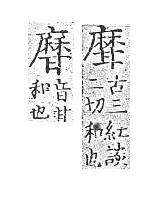 古三紅談
二切和也
音甘
和也